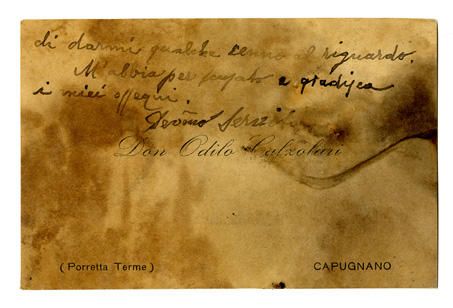 di darmi qualche cenno al riguardo.
M'abbia per scusato e gradisca
i miei ossequi.
Devmo Servitore
Don Odilo Calzolari
(Porretta Terme) CAPUGNANO